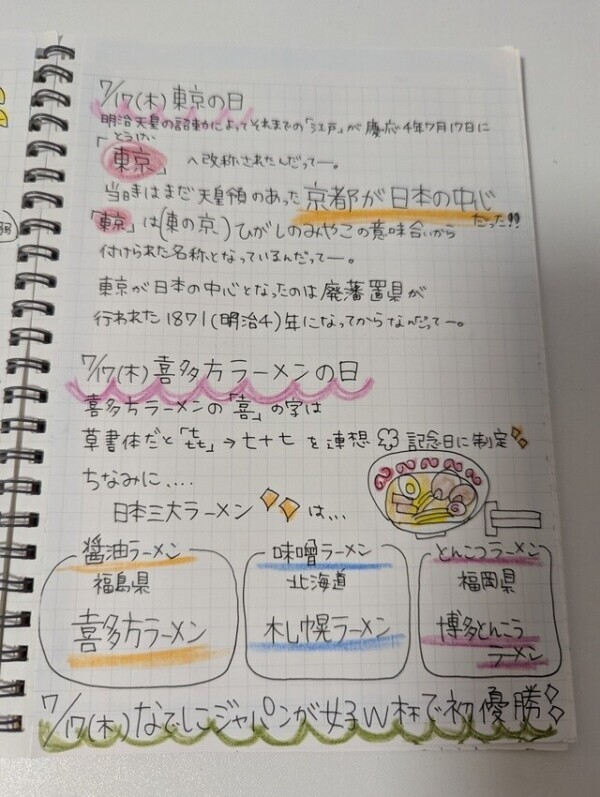 7/17(木)東京の日
明治天皇の詔勅によってそれまでの「江戸」が慶応4年7月17日に
とうけい
「東京」へ改称されたんだってー。
当時はまだ天皇領のあった京都が日本の中心だった!!
「東京」は(東の京)ひがしのみやこの意味合いから
付けられた名称となっているんだってー。
東京が日本の中心となったのは廃藩置県が
行われた1871(明治4)年になってからなんだってー。
7/17(木)喜多方ラーメンの日
喜多方ラーメンの「喜」の字は
草書体だと「㐂」→七十七を連想 記念日に制定
ちなみに....
日本三大ラーメン は...
醤油ラーメン
福島県
喜多方ラーメン
味噌ラーメン
北海道
札幌ラーメン
とんこつラーメン
福岡県
博多とんこつ
ラーメン
7/17(木)なでしこジャパンが女子W杯で初優勝!